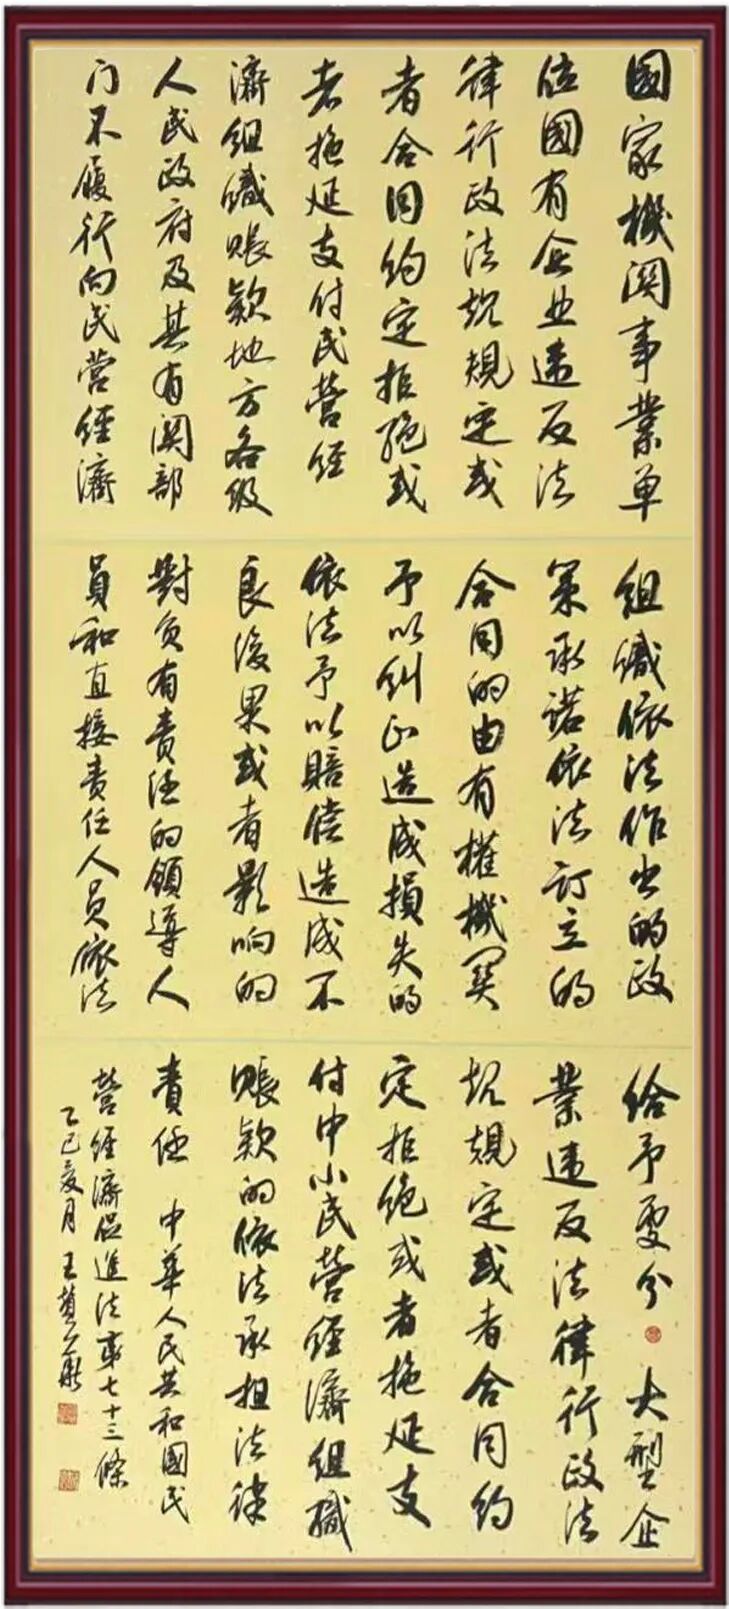 國家機関事業單
位國有企业違反法
律行政法规規定或
者合同约定拒绝或
者拖延支付民營经
濟组織賬款地方各级
人民政府及其有関部
门不履行向民营经濟
组織依法作出的政
策承诺依法订立的
合同的由有權機関
予以纠正造成損失的
依法予以賠偿造成不
良後果或者影响的
對负有责任的領導人
員和直接责任人员依法
给予處分 大型企
業違反法律行政法
规規定或者合同约
定拒绝或者拖延支
付中小民營经濟组織
賬款的依法承担法律
责任 中華人民共和國民
營经濟促進法第七十三條
乙巳夏月 王